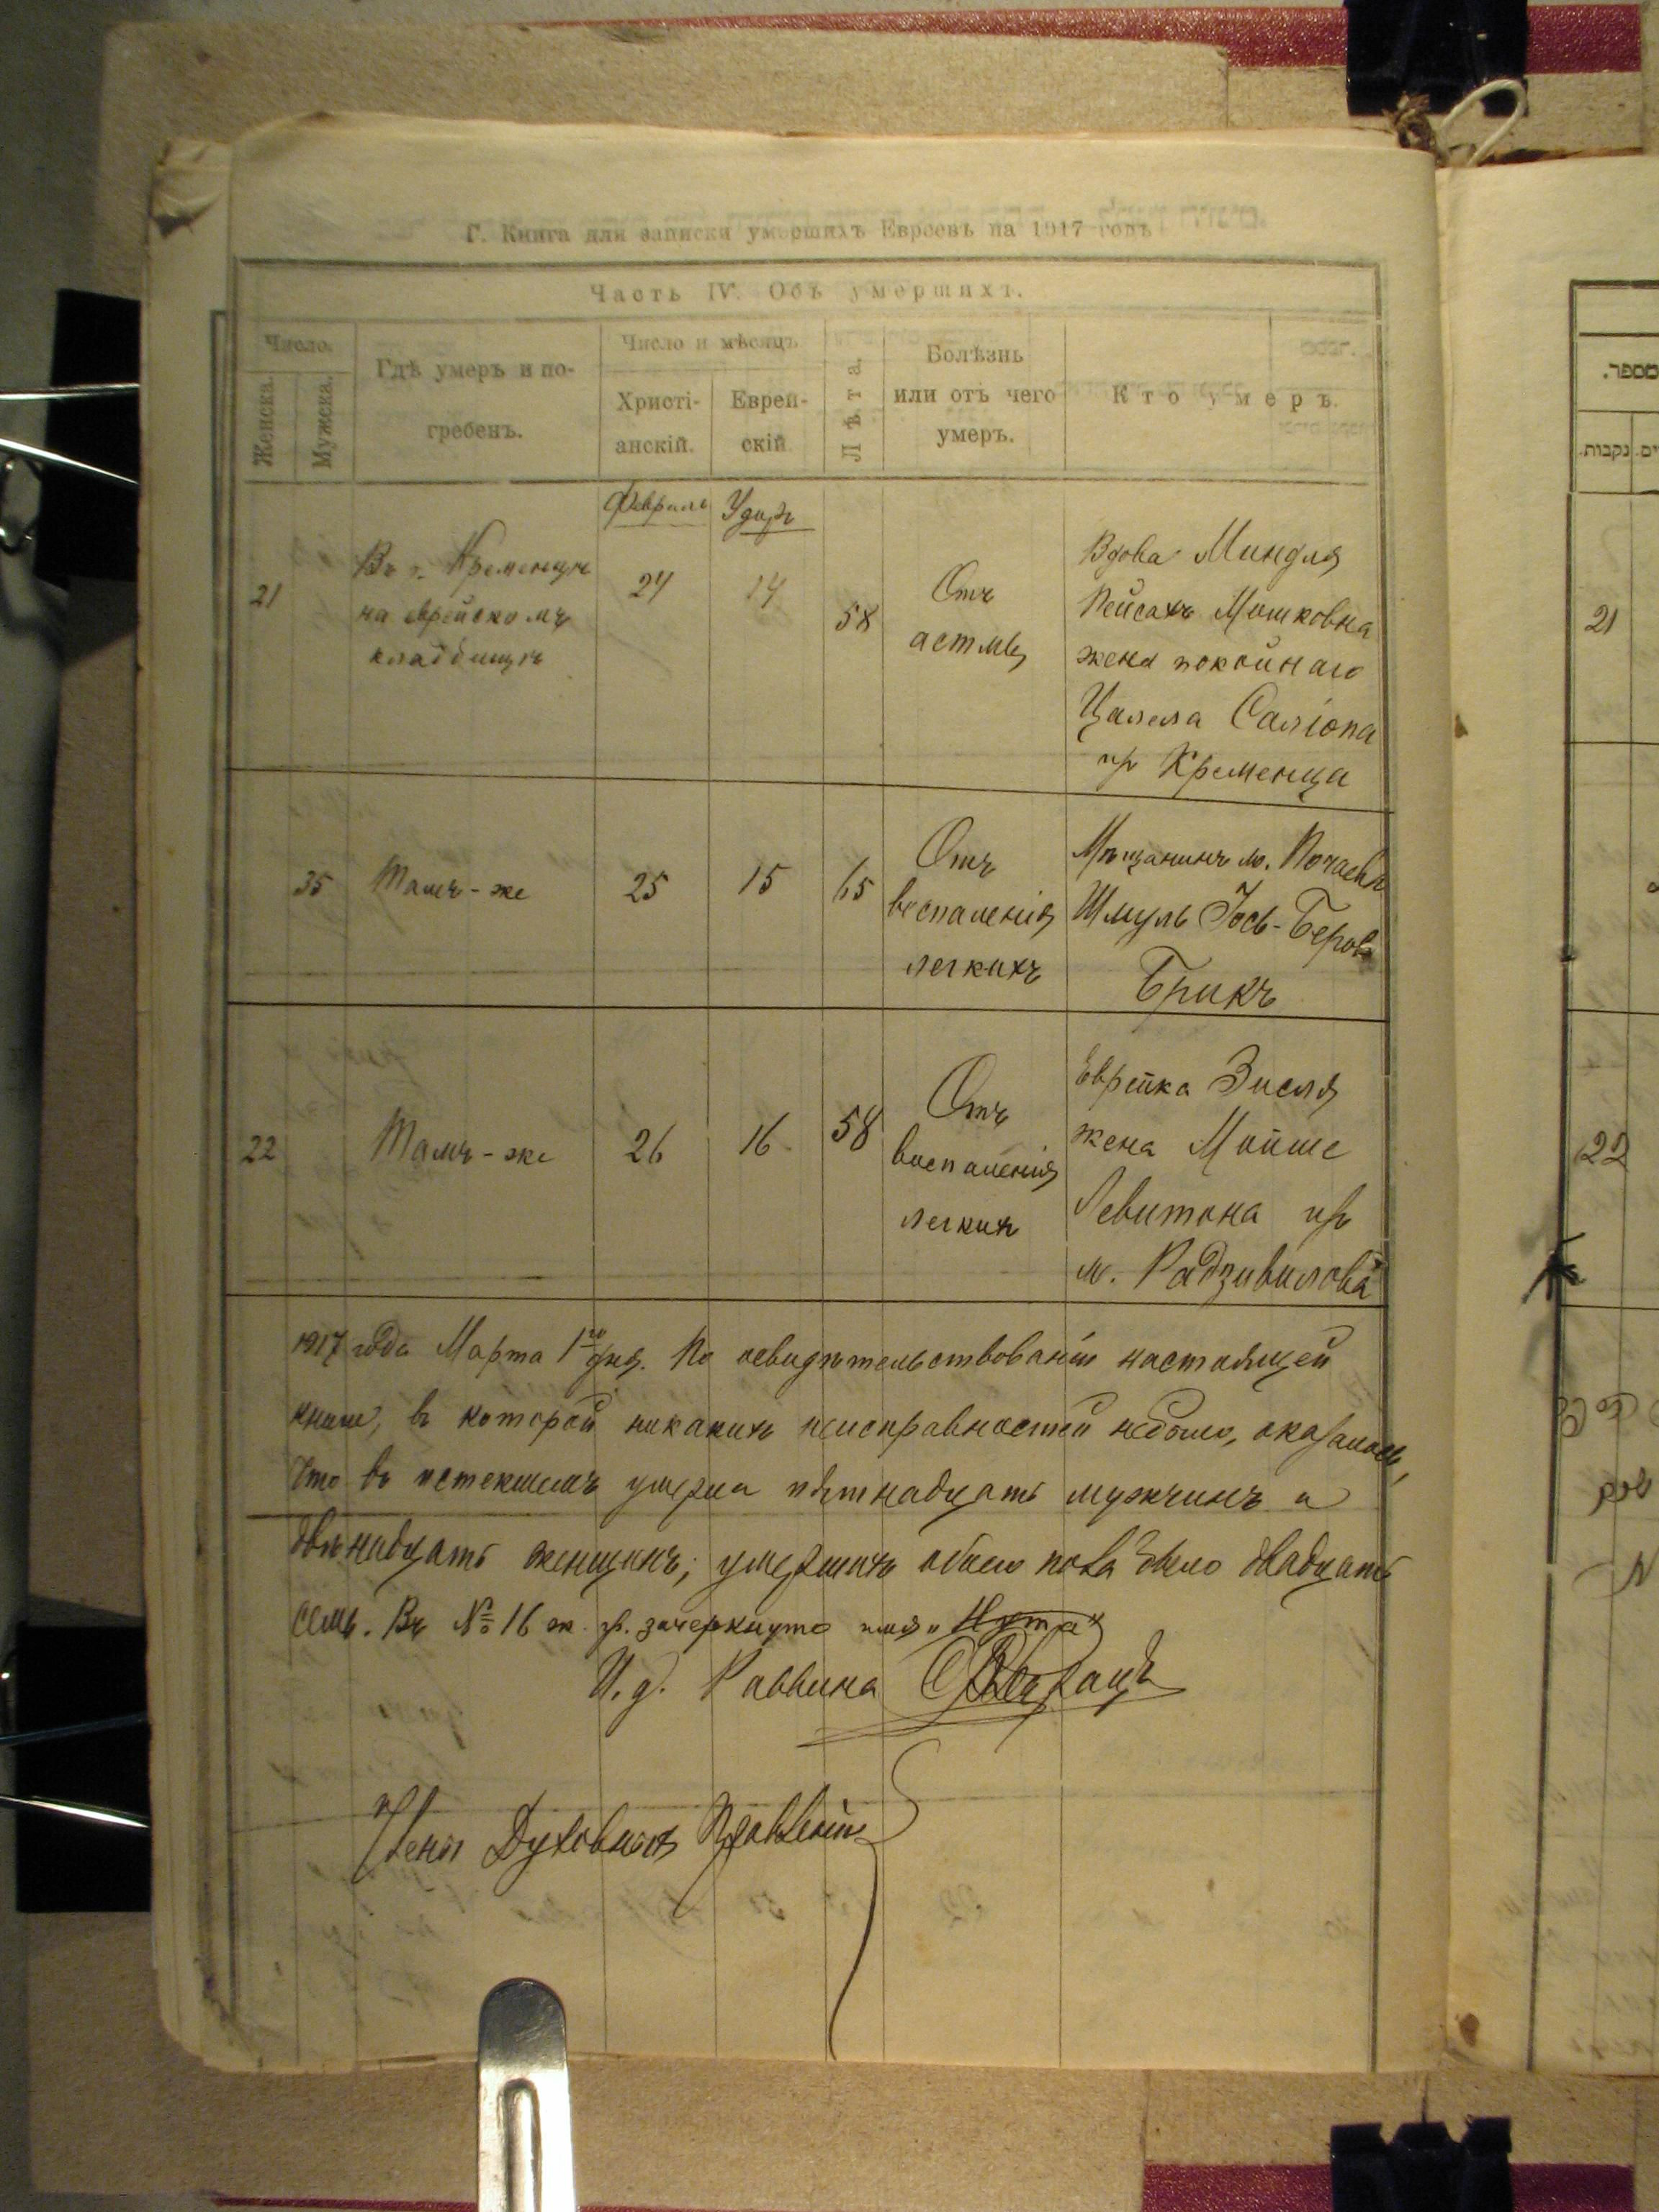 Г. Книга для записки умершихъ Евреевъ на 1917 годъ
Часть IV. Объ умершихъ.
Число.
Женска.
Мужеска.
Гдѣ умеръ и по-
гребенъ.
Число и мѣсяцъ
Христі-
анскій.
Еврей-
скій
Лѣта.
Болѣзнь
или отъ чего
умеръ.
Кто умеръ.
Февраль
21
Въ г. Кременцѣ
на еврейскомъ
кладбищѣ
24
14
58
Отъ
астмы
Вдова Миндля
Пейсахъ Мошковна
жена покойнаго
Цалела Саліопа
пр Кременца
35
Тамъ-же
25
15
65
Отъ
воспаленія
легкихъ
Мѣщанинъ м. Почаева
Шмуль Іось-Беровъ
Брикъ
22
Тамъ-же
26
16
58
Отъ
воспаленія
легкихъ
Еврейка Зисля
жена Мойше
Левитона пр
м. Радзивилова
1917 года Марта 1го дня. По освидѣтельствованіи настоящей
книги, въ которой никакихъ неисправностей небыло, оказалось,
что въ истекшемъ умерли пятнадцать мужчинъ и
двѣнадцать женщинъ; умершихъ обоего пола было двадцать
семь. Въ № 16 ж. гр. зачеркнуто имя „Нута"
И. д. Раввина
Члены Духовнаго Правленія
מספר.
נקבות.
21
22